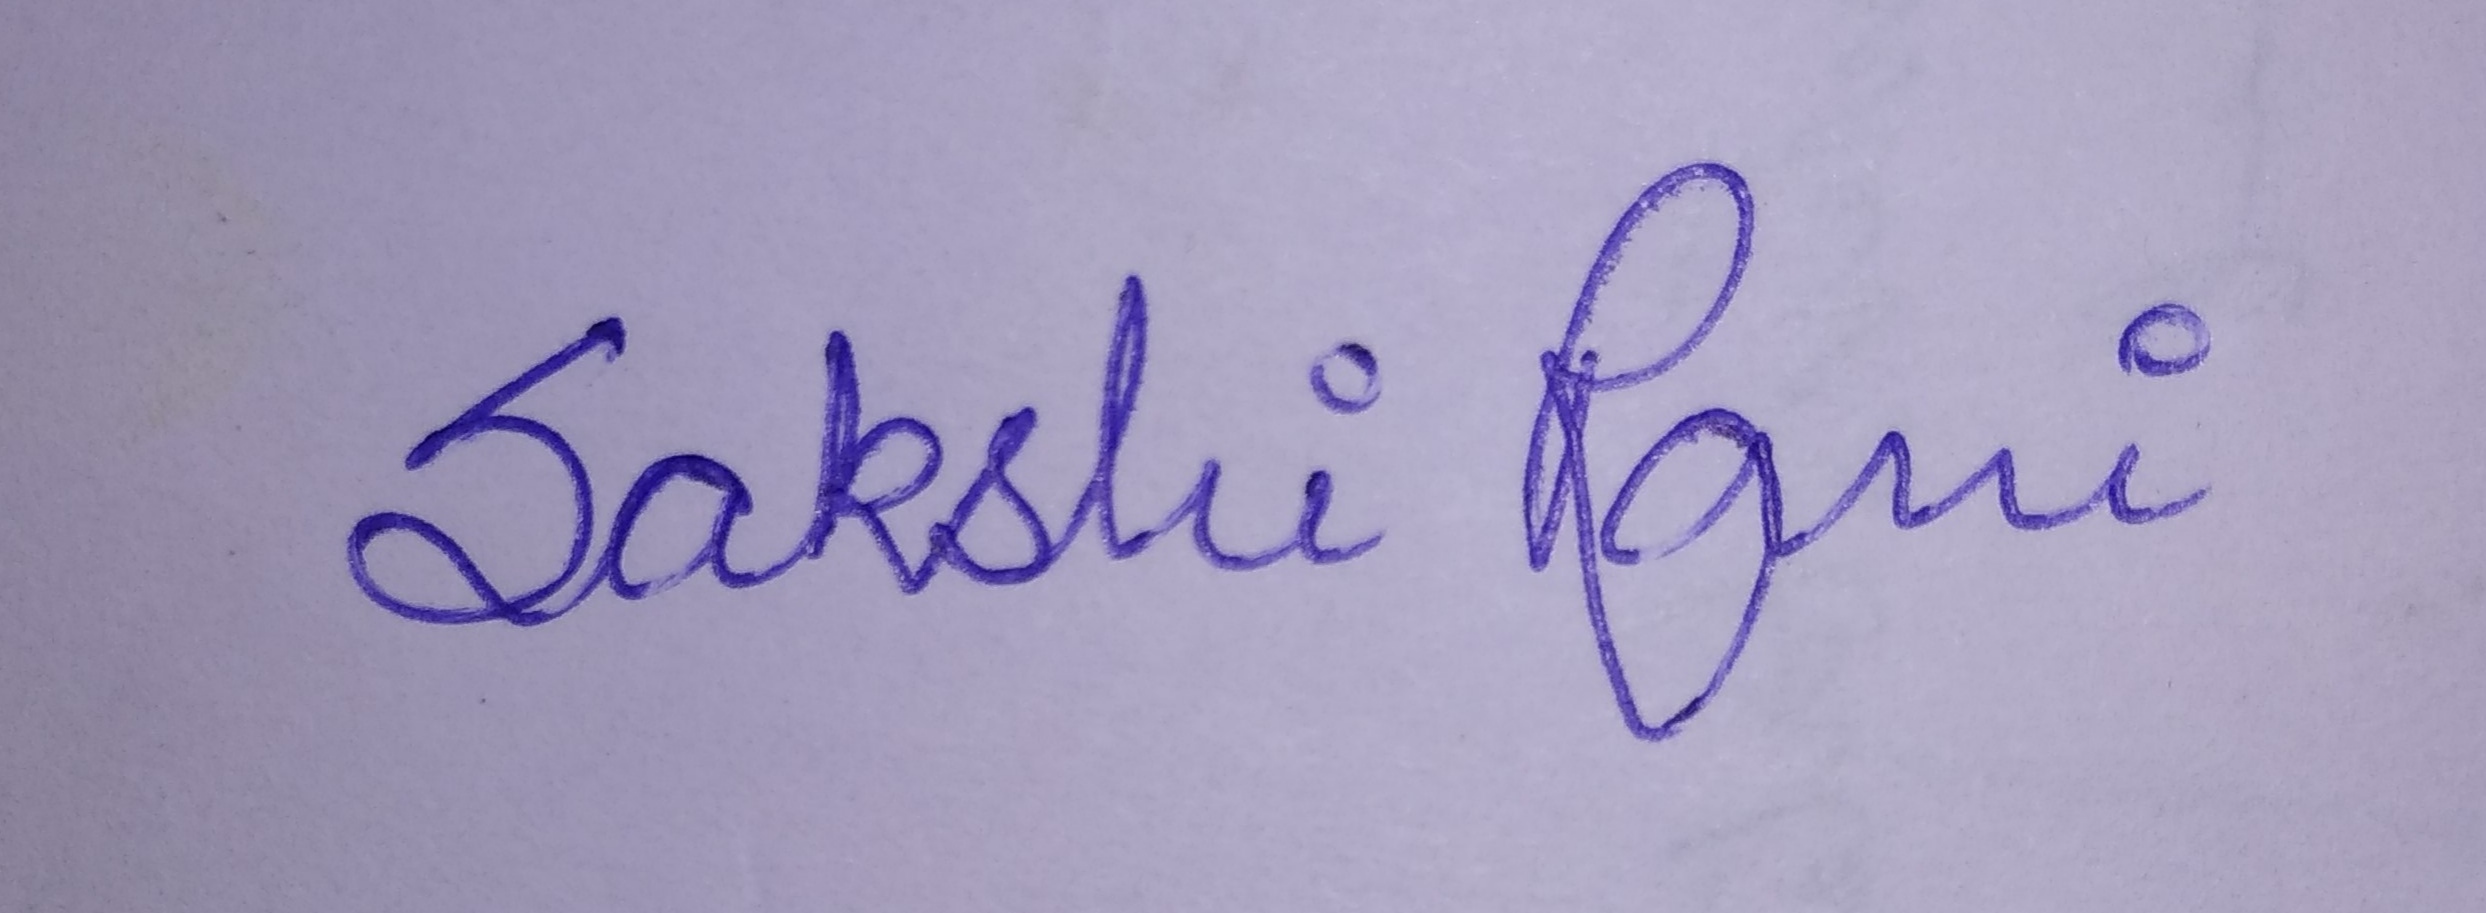 Sakshi Rani